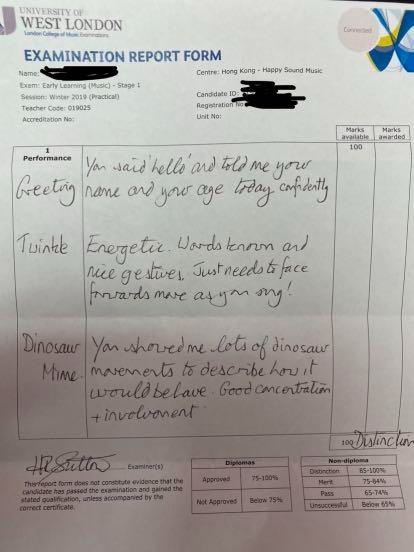 UNIVERSITY OF
WEST LONDON
London College of Music Examinations
Connected
EXAMINATION REPORT FORM
Name:
Centre: Hong Kong - Happy Sound Music
Exam: Early Learning (Music) - Stage 1
Candidate ID:
Session: Winter 2019 (Practical)
Registration No:
Teacher Code: 019025
Unit No:
Accreditation No:
Marks available
Marks awarded
1
Performance
100
Greeting
You said 'hello' and told me your
name and your age today confidently
Twinkle
Energetic. Words known and
nice gestures. Just needs to face
forwards more as you sing!
Dinosaur
Mime.
You showed me lots of dinosaur
movements to describe how it
would behave. Good concentration
+ involvement.
100
Distinction
Examiner(s)
This report form does not constitute evidence that the
candidate has passed the examination and gained the
stated qualification, unless accompanied by the
correct certificate.
Diplomas
Approved 75-100%
Not Approved Below 75%
Non-diploma
Distinction 85-100%
Merit 75-84%
Pass 65-74%
Unsuccessful Below 65%